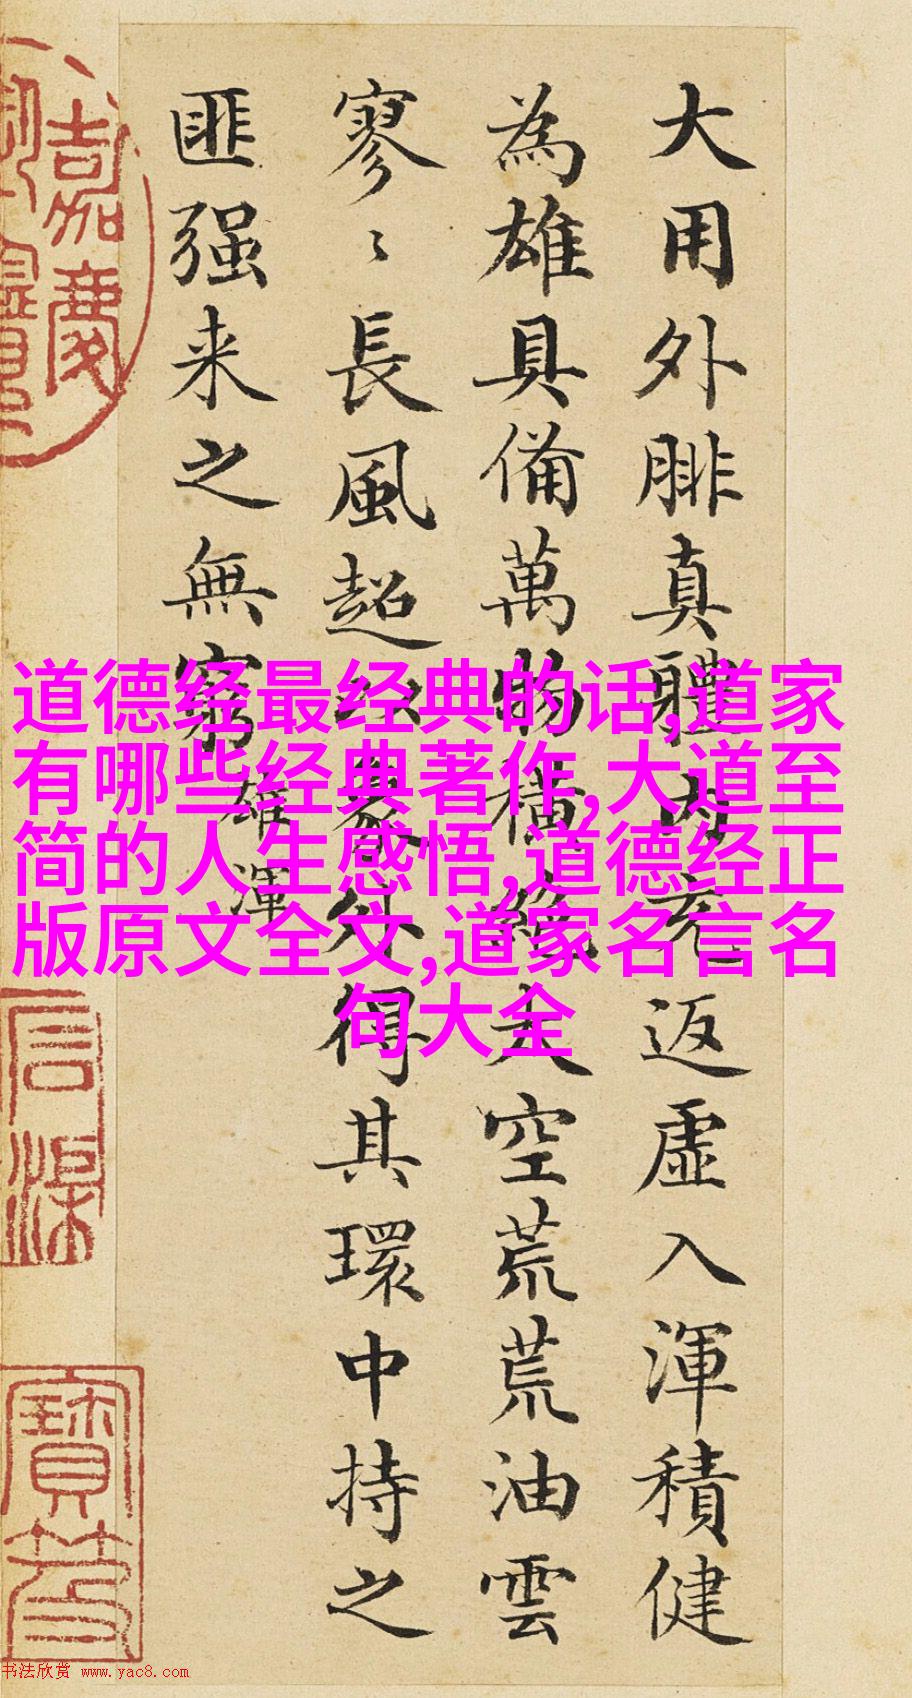 大用外腓真體内充返虛入渾積健
為雄具備萬物橫絕太空荒荒油雲
寥〻長風超以象外得其環中持之
匪强来之無窮
雄渾
道德经最经典的话,道家
有哪些经典著作,大道至
简的人生感悟,道德经正
版原文全文,道家名言名
句大全
嘉慶
寶笈
书法欣赏 www.yac8.com